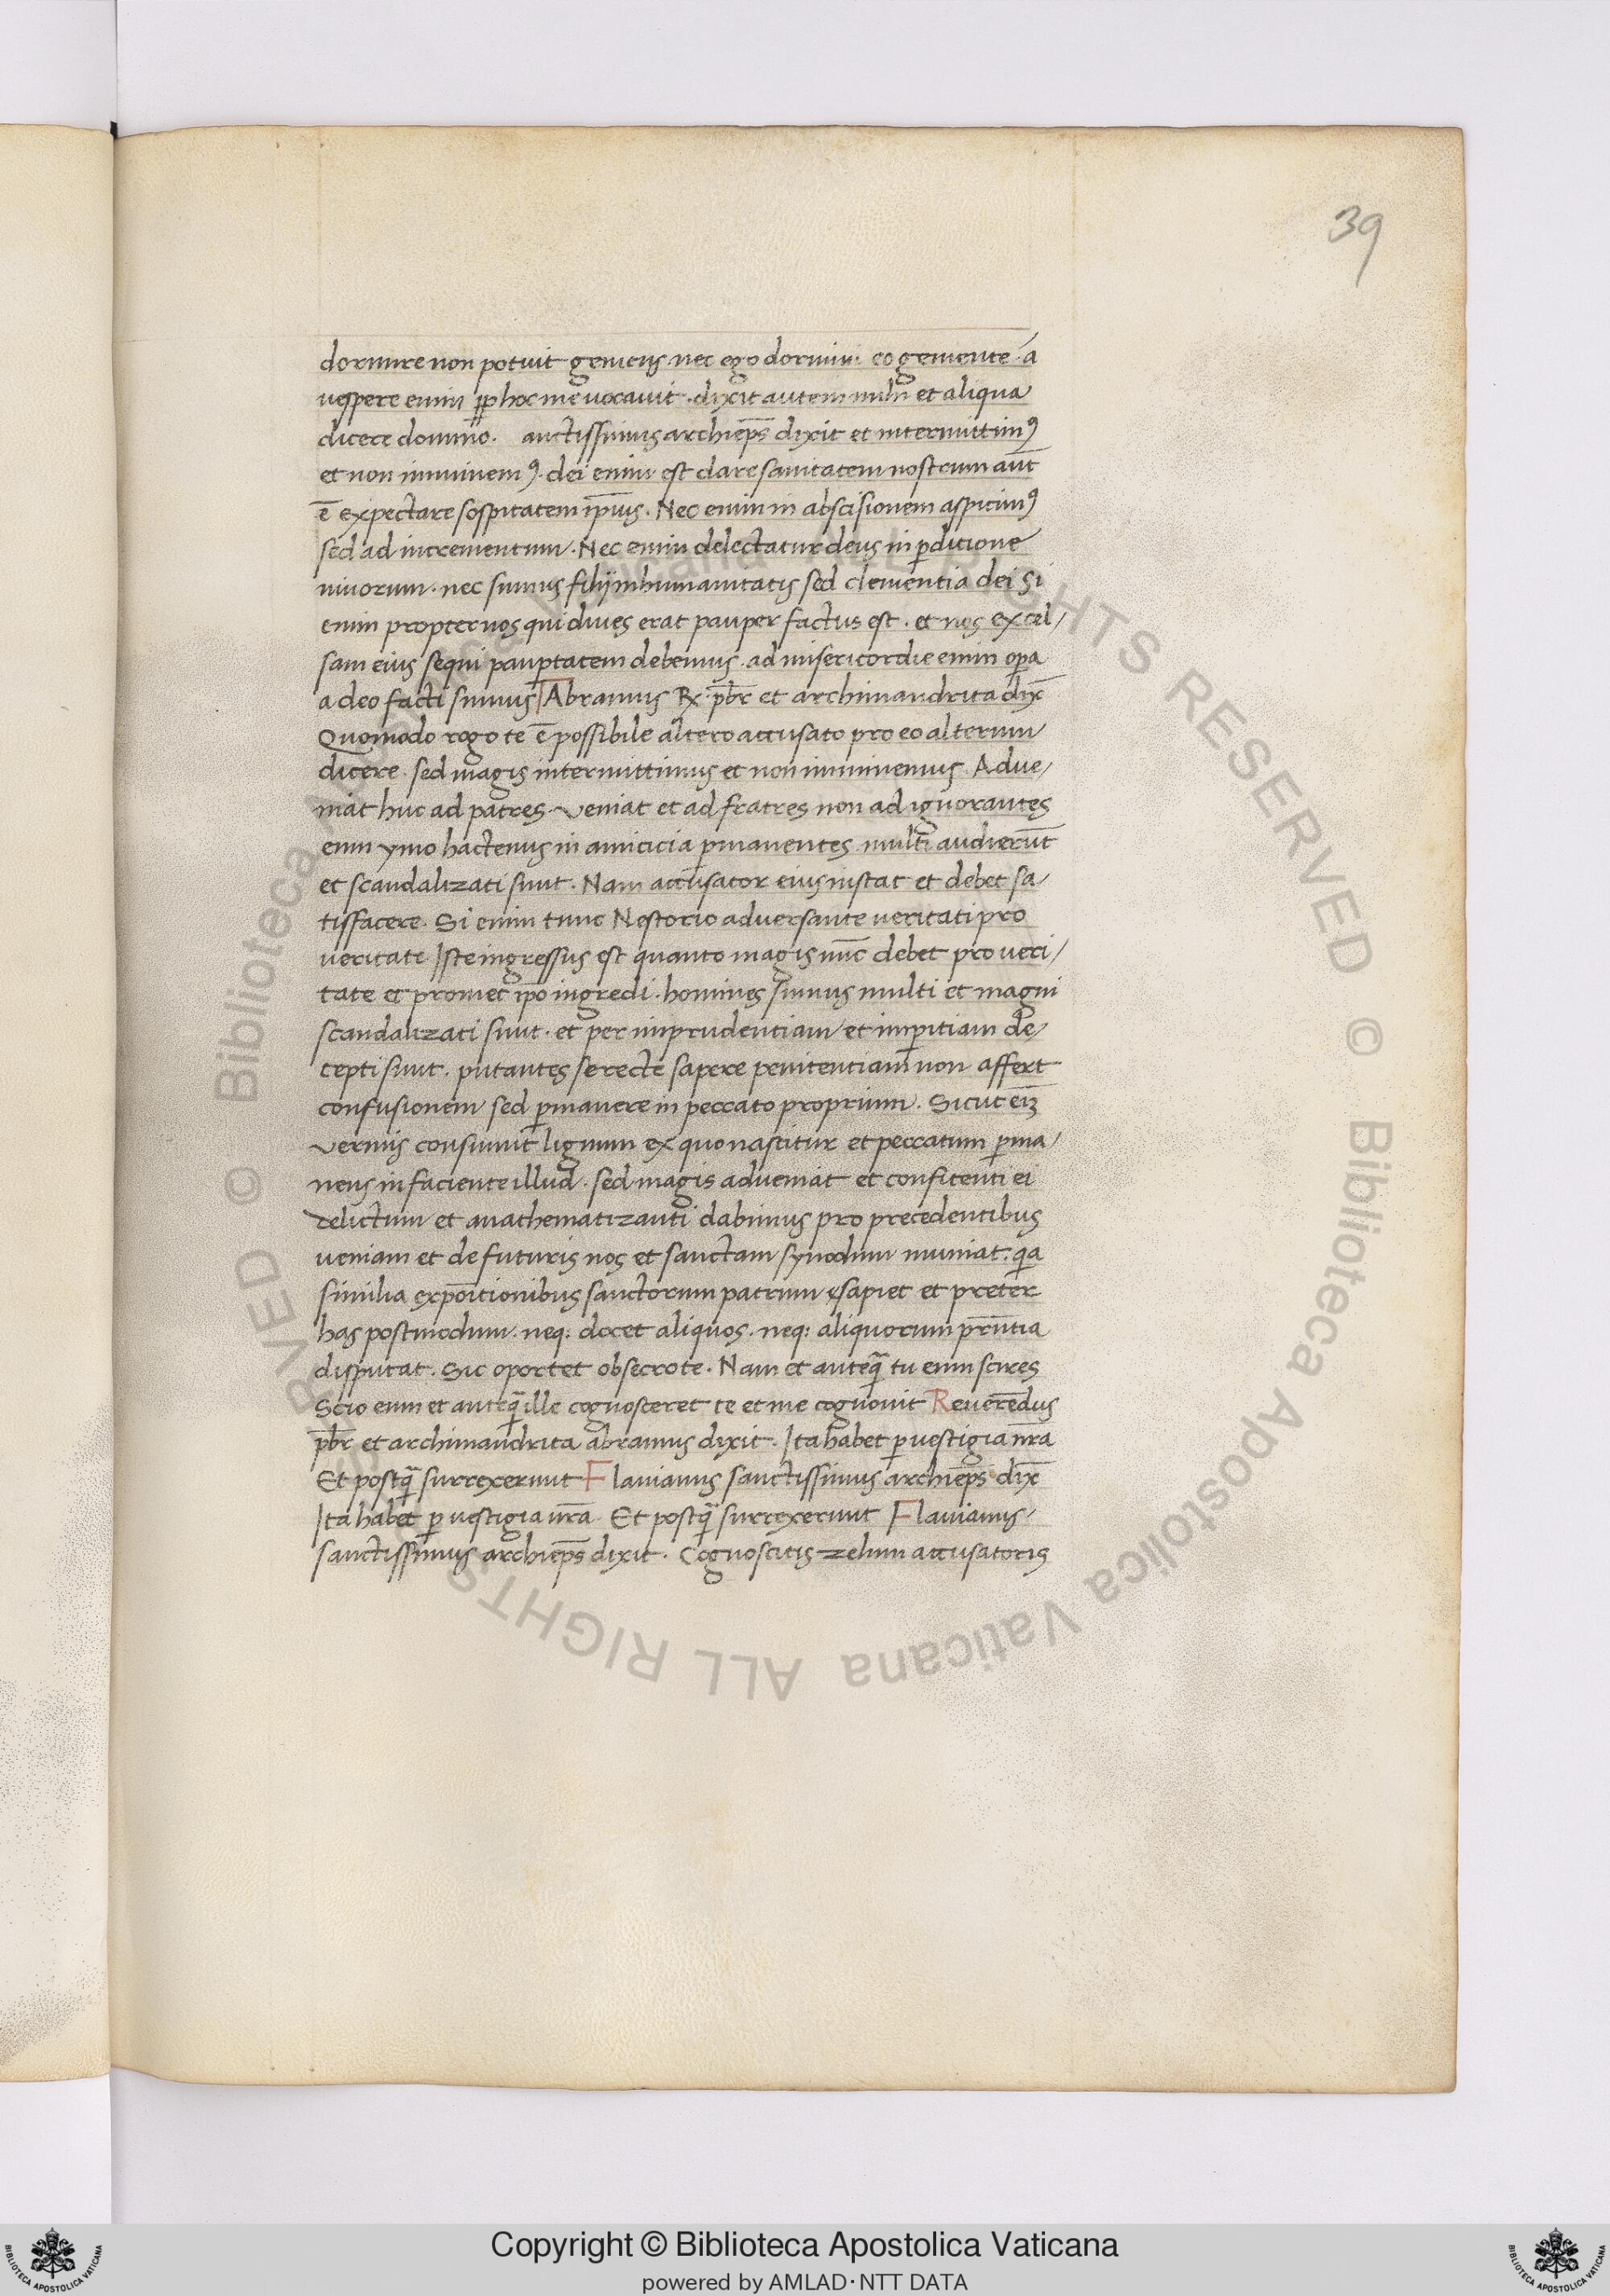 39
dormire non potuit gemens nec ego dormivi eo gemente · a
vespere enim ꝓp hoc me vocavit · dixit autem mihi et aliqua
dicere domino. anctissimus archiep̄s dixit et intermittimꝰ
et non imminemꝰ · dei enim est dare sanitatem nostrum aūt
ē expectare sospitatem ip̄ius · Nec enim in abscisionem aspicimꝰ
sed ad incrementum · Nec enim delectatur deus in ꝑditione
vivorum · nec sumus filij inhumanitatis sed clementia dei Si
enim propter nos qui dives erat pauper factus est · et nos excel/
sam eius sequi pauꝑtatem debemus · ad misericordie enim oꝑa
a deo facti sumus Abramus Rx · p̄br et archimandrita dix̄
Quomodo rogo te ē possibile altero accusato pro eo alterum
dicere · sed magis intermittimus et non imminemus Adve/
niat huc ad patres · veniat et ad fratres non ad ignorantes
eum ymo hactenus in amicicia ꝑmanentes multi audierūt
et scandalizati sunt · Nam accusator eius instat et debet sa/
tisfacere · Si enim tunc Nestorio adversante veritati pro
veritate Iste ingressus est quanto magis nūc debet pro veri/
tate et promet ip̄o ingredi · homines sumus multi et magni
scandalizati sunt · et per imprudentiam et imꝑitiam de/
cepti sunt · putantes se recte sapere penitentiam non affert
confusionem sed ꝑmanere in peccato proprium · Sicut eīꝫ
vermis consumit lignum ex quo nascitur et peccatum ꝑma/
nens in faciente illud · sed magis adveniat et confitenti ei
delictum et anathematizanti dabimus pro precedentibus
veniam et de futuris nos et sanctam synodum muniat · qa
similia exp̄oitionibus sanctorum patrum sapiet et preter
has postmodum · neq: docet aliquos · neq: aliquorum pr̄ntia
disputat · Sic oportet obsecro te · Nam et anteq̄ tu eum scires
Scio eum et anteq̄ ille cognosceret te et me cognovit Reverēdus
p̄br et archimandrita abramus dixit · Ita habet ꝑ vestigia nr̄a
Et postq̄ surrexerunt Flavianus sanctissimus archiep̄s dix̄
Ita habet ꝑ vestigia nr̄a · Et postq̄ surrexerunt Flavianus
sanctissimus archiep̄s dixit · Cognoscitis zelum accusatoris
© Biblioteca Apostolica Vaticana ALL RIGHTS RESERVED © Biblioteca Apostolica Vaticana ALL RIGHTS RESERVED
Copyright © Biblioteca Apostolica Vaticana
powered by AMLAD·NTT DATA
BIBLIOTECA APOSTOLICA VATICANA
BIBLIOTECA APOSTOLICA VATICANA